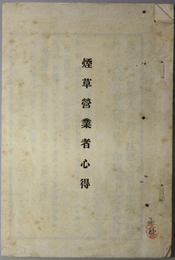 煙草營業者心得